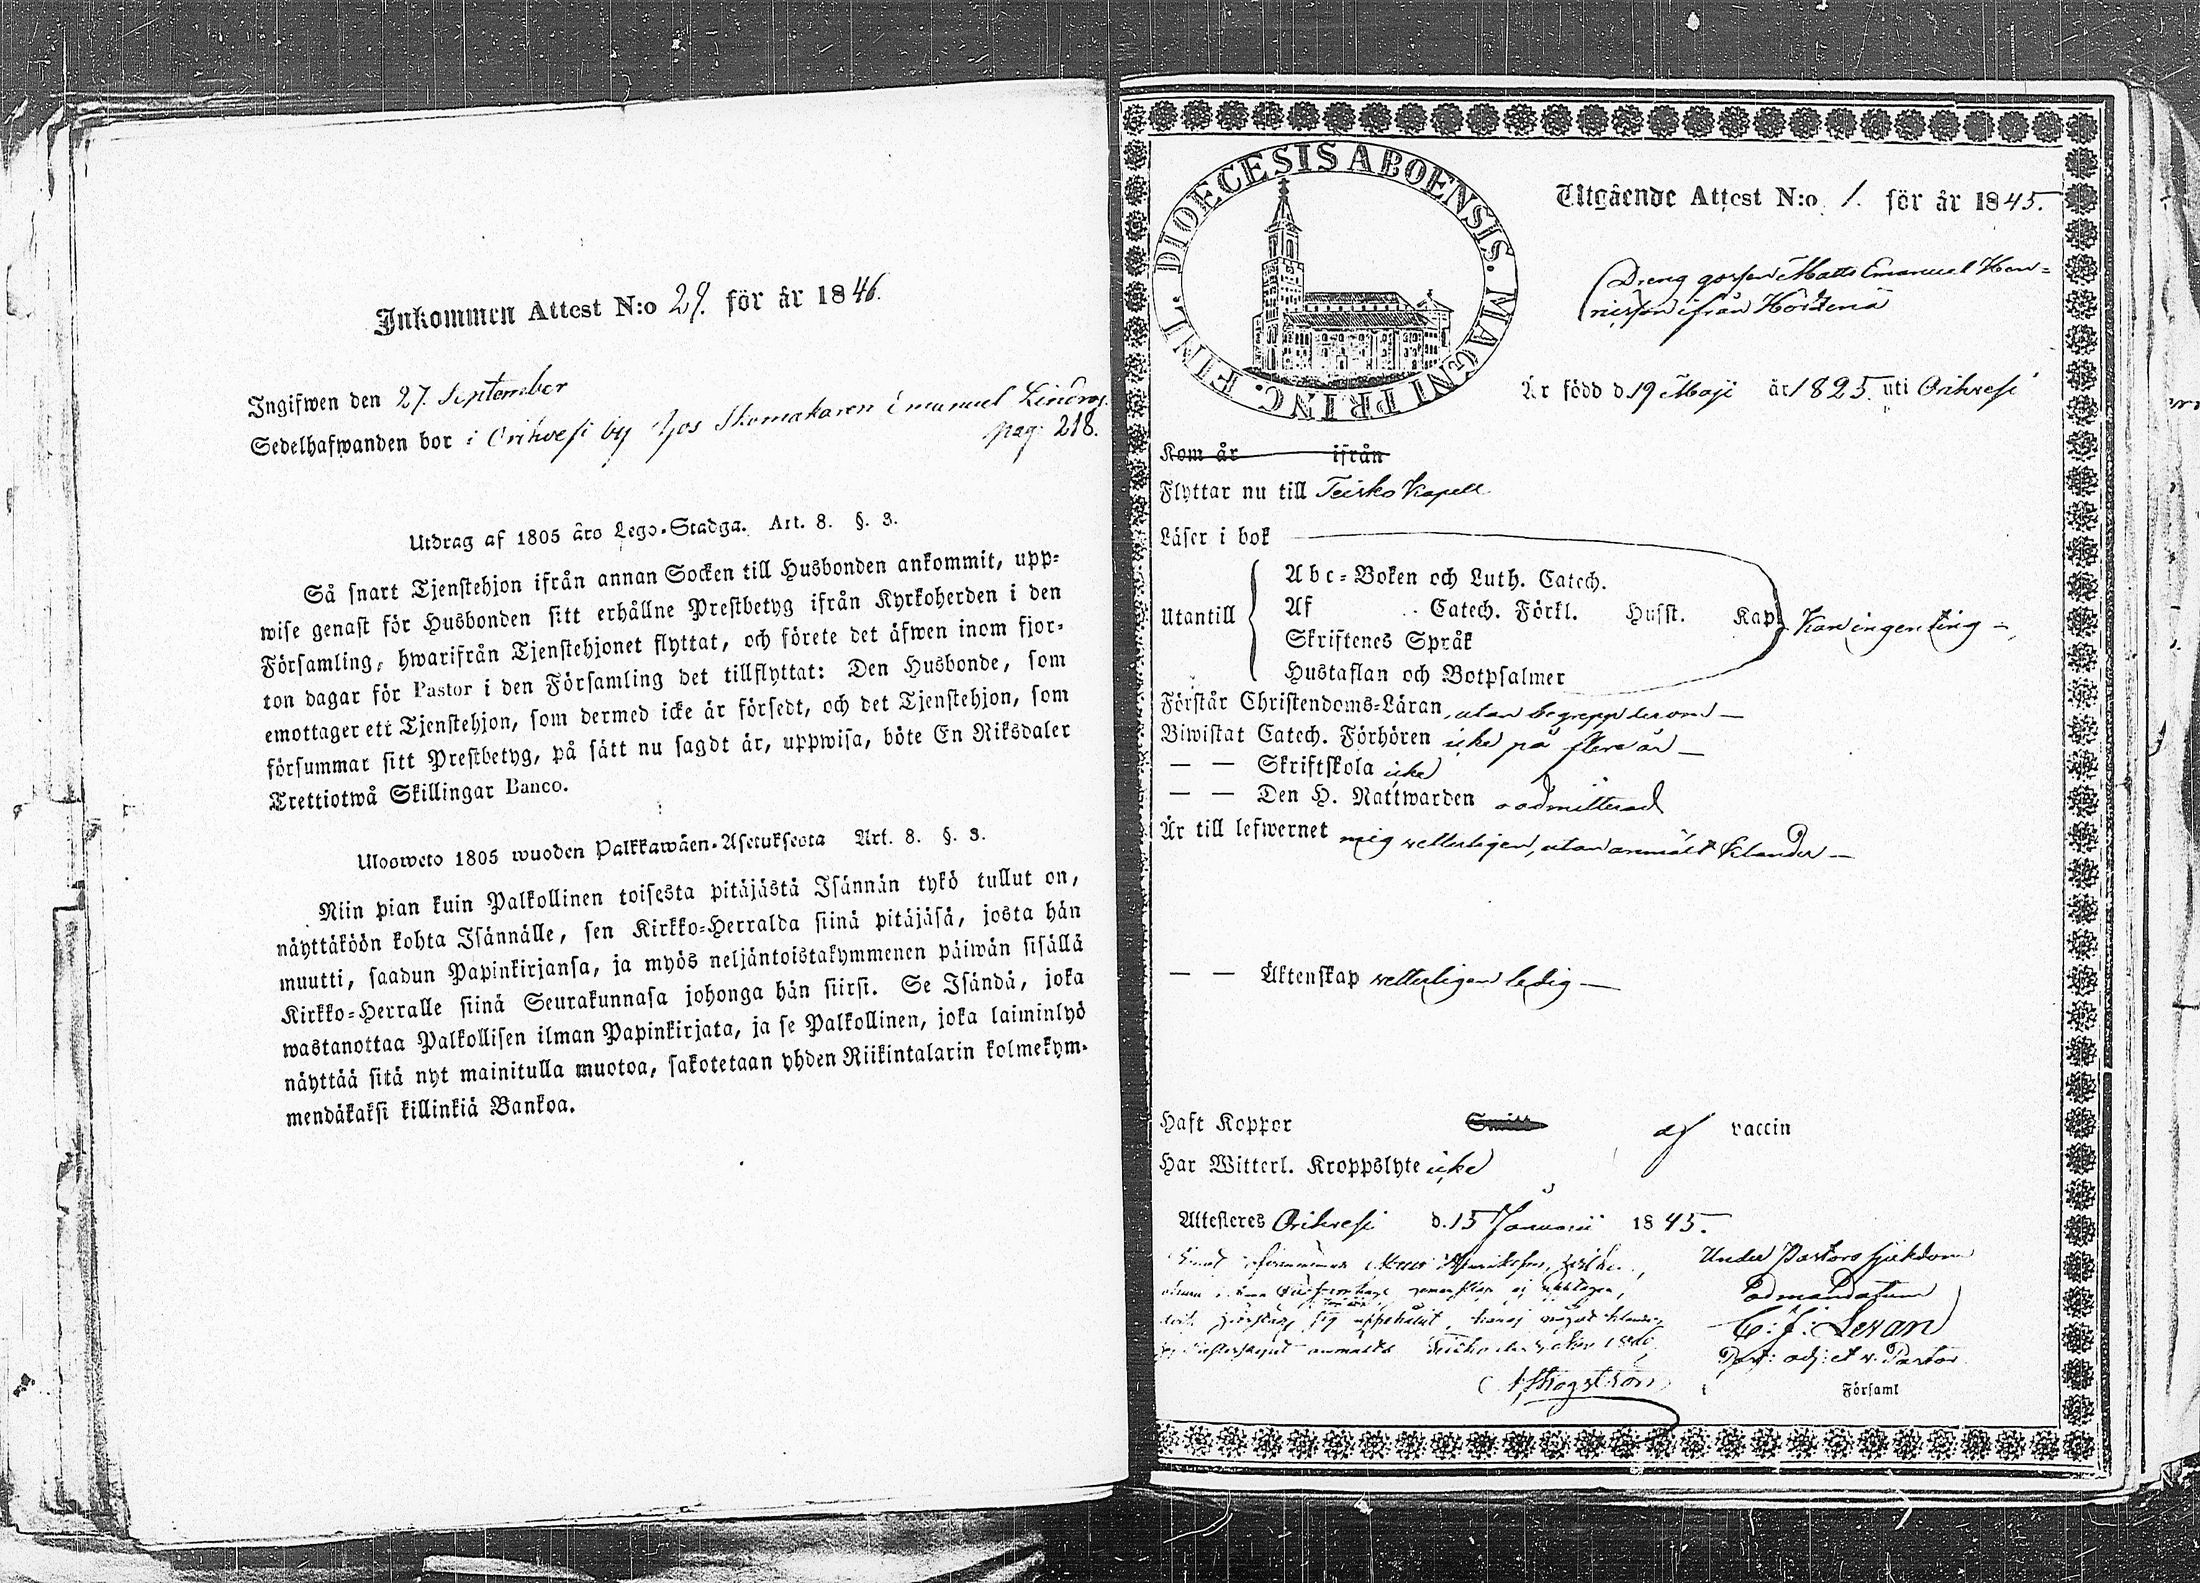 Inkommen Attest N:o 29. för år 1846.
Ingifwen den 27. September
Sedelhafwanden bor i Orihvesi by hos Skomakaren Emanuel Lindros.
pag: 218.
Utdrag af 1805 års Lego-Stadga. Art. 8. §. 3.
Så snart Tjenstehjon ifrån annan Socken till Husbonden ankommit, upp-
wise genast för Husbonden sitt erhållne Prestbetyg ifrån Kyrkoherden i den
Församling, hwarifrån Tjenstehjonet flyttat, och förete det äfwen inom fjor-
ton dagar för Pastor i den Församling det tillflyttat: Den Husbonde, som
emottager ett Tjenstehjon, som dermed icke är försedt, och det Tjenstehjon, som
försummar sitt Prestbetyg, på sätt nu sagdt är, uppwisa, böte En Riksdaler
Trettiotwå Skillingar Banco.
Ulosweto 1805 wuoden Palkkawäen-Asetuksesta Art. 8. §. 3.
Niin pian kuin Palkollinen toisesta pitäjästä Isännän tykö tullut on,
näyttäköön kohta Isännälle, sen Kirkko-Herralda siinä pitäjäsä, josta hän
muutti, saadun Papinkirjansa, ja myös neljäntoistakymmenen päiwän sisällä
Kirkko-Herralle siinä Seurakunnasa johonga hän siirsi. Se Isändä, joka
wastanottaa Palkollisen ilman Papinkirjata, ja se Palkollinen, joka laiminlyö
näyttää sitä nyt mainitulla muotoa, sakotetaan yhden Riikintalarin kolmekym-
mendäkaksi killinkiä Bankoa.
DIOECESIS ABOENSIS. MAGNI PRINC. FINL.
Utgående Attest N:o 1. för år 1845.
Dreng gossen Matts Emanuel Hen-
ricsson ifrån
Är född d. 19 Maji år 1825. uti Orihvesi
Kom år ifrån
Flyttar nu till Teisko Kapell
Läser i bok
Abc-Boken och Luth. Catech.
Utantill Af Catech. Förkl. Husst. Kap. Kan ingen ting
Skriftenes Språk
Hustaflan och Botpsalmer
Förstår Christendoms-Läran, utan begrepp derom
Biwistat Catech. Förhören icke på flere år
— — Skriftskola icke
— — Den H. Nattwarden oadmitterad
Är till lefwernet mig vetterligen, utan anmält klander
— — Äktenskap vetterligen ledig
Haft Koppor af vaccin
Har Witterl. Kroppslyte icke
Attesteres Orihvesi d. 15 Januarii 1845.
Under Pastors sjukdom
admandatum
C: J: Levan
Past: adj: et v. Pastor
Församl